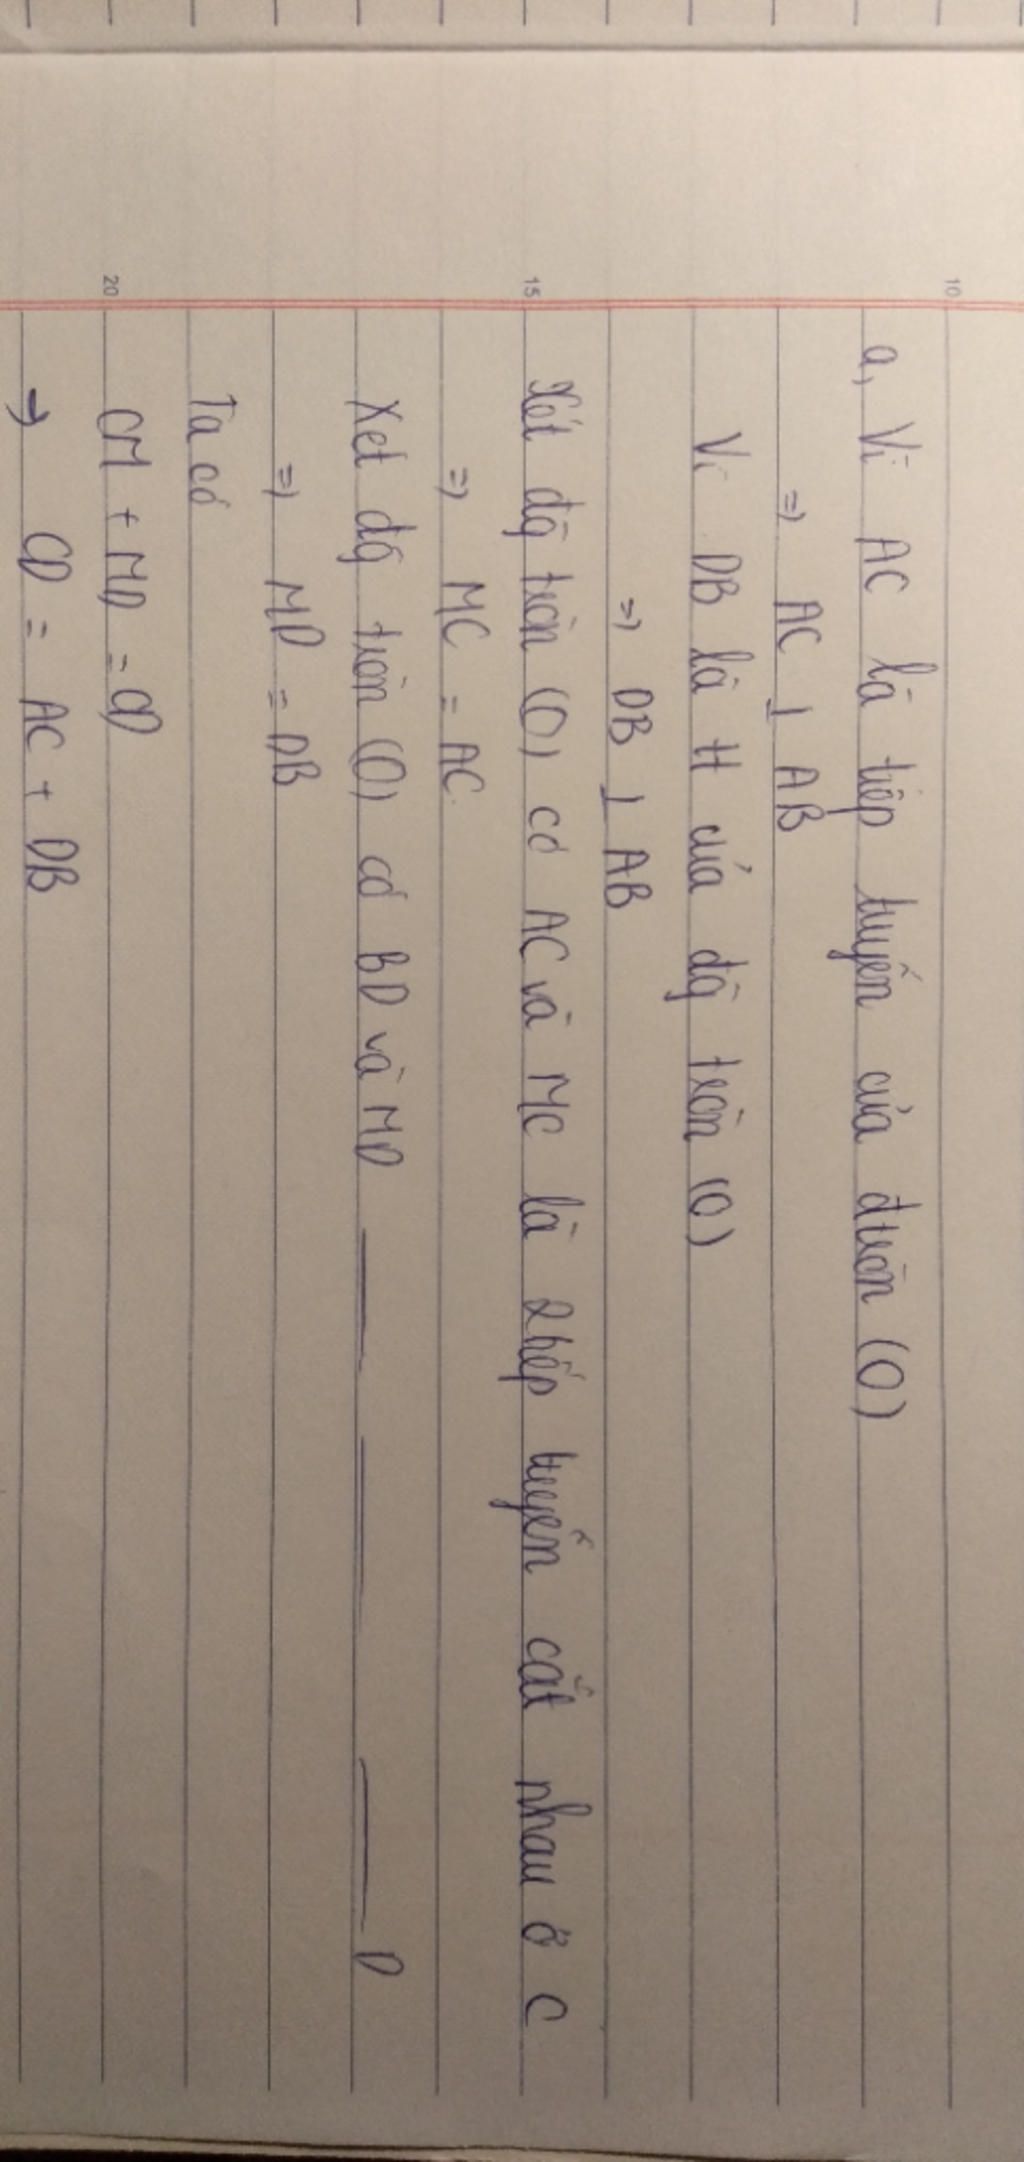 10
a, Vì AC là tiếp tuyến của đtròn (O)
=> AC ⊥ AB
Vì DB là tt của đg tròn (O)
=> DB ⊥ AB
15
Xét đg tròn (O) có AC và MC là 2 tiếp tuyến cắt nhau ở C
=> MC = AC
Xét đg tròn (O) có BD và MD — — — D
=> MD = DB
Ta có
20
CM + MD = CD
=> CD = AC + DB